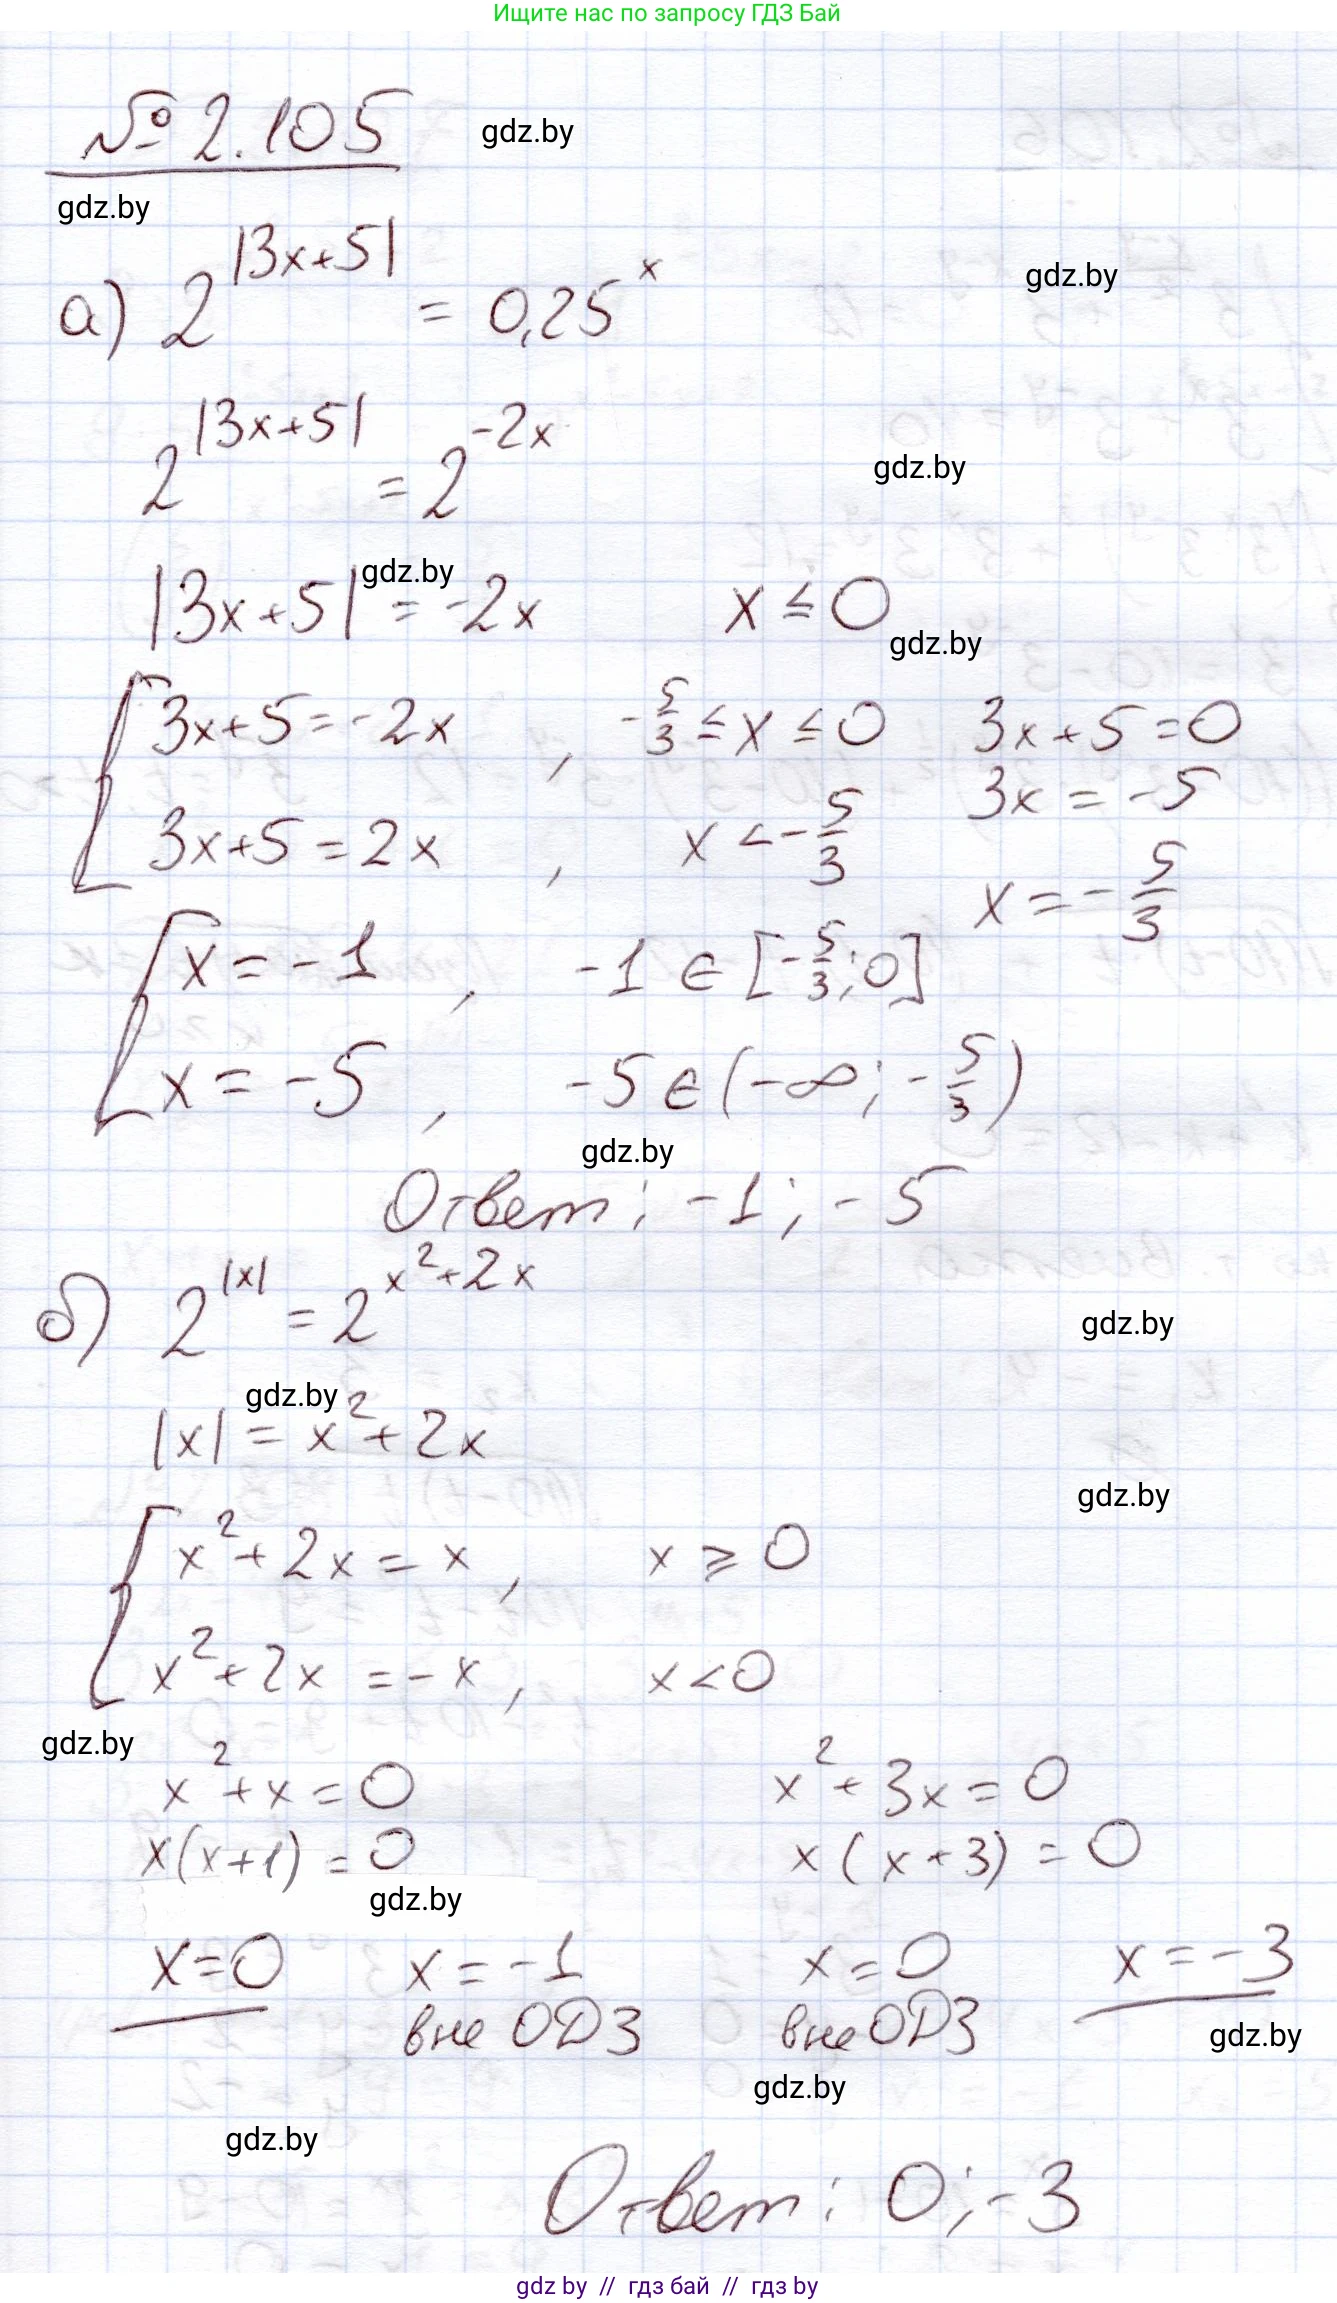 Ищите нас по запросу ГДЗ Бай
№ 2.105
gdz.by
gdz.by
а) 2^|3x+5| = 0,25^x
gdz.by
2^|3x+5| = 2^-2x
gdz.by
gdz.by
|3x+5| = -2x x ≤ 0
gdz.by
[ 3x+5 = -2x , -5/3 ≤ x ≤ 0 3x+5=0
3x = -5
3x+5 = 2x , x < -5/3
x = -5/3
[ x = -1 , -1 ∈ [-5/3; 0]
x = -5 , -5 ∈ (-∞; -5/3)
gdz.by
Ответ: -1; -5
б) 2^|x| = 2^x²+2x
gdz.by
gdz.by
|x| = x² + 2x
gdz.by
[ x² + 2x = x , x ≥ 0
x² + 2x = -x , x < 0
gdz.by
x² + x = 0 x² + 3x = 0
x(x+1) = 0 x(x+3) = 0
gdz.by
x=0 x = -1 x = 0 x = -3
вне ОДЗ вне ОДЗ
gdz.by
gdz.by
gdz.by
Ответ: 0; -3
gdz by // гдз бай // гдз by